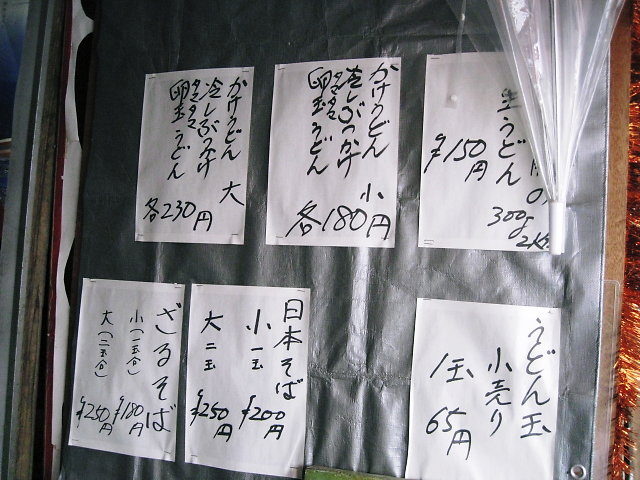 かけうどん
冷しぶっかけ
卵玉うどん
大
各230円
かけうどん
冷しぶっかけ
卵玉うどん
小
各180円
生うどん
¥150円
300g
ざるそば
小(一玉合) ¥180円
大(二玉合) ¥250円
日本そば
小一玉 ¥200円
大二玉 ¥250円
うどん玉
小売り
1玉 65円